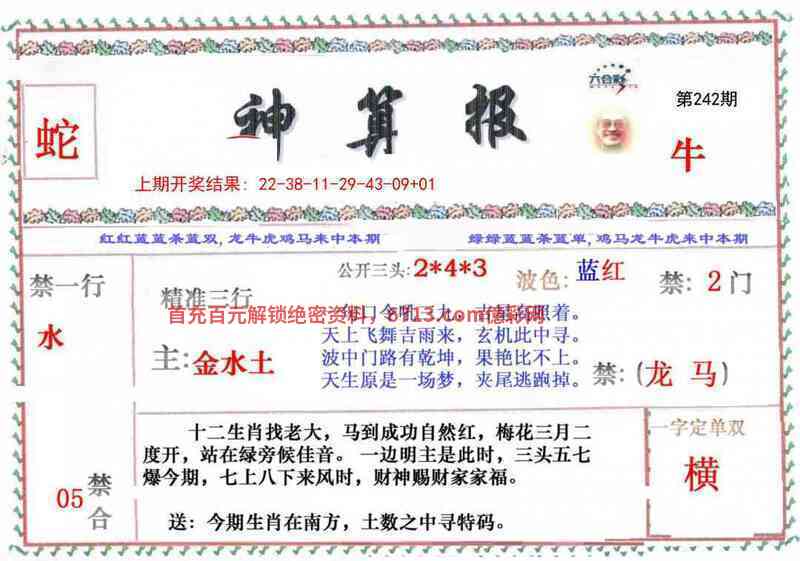 六合彩
第242期
蛇
神算报
牛
上期开奖结果：22-38-11-29-43-09+01
红红蓝蓝杀蓝双,龙牛虎鸡马来中本期
绿绿蓝蓝杀蓝单,鸡马龙牛虎来中本期
禁一行
水
精准三行
主:金水土
公开三头:2*4*3
波色:蓝红
禁:2门
首充百元解锁绝密资料
天上飞舞吉雨来，玄机此中寻。
波中门路有乾坤，果艳比不上。
天生原是一场梦，夹尾逃跑掉。
禁:(龙 马)
十二生肖找老大，马到成功自然红，梅花三月二
度开，站在绿旁候佳音。一边明主是此时，三头五七
爆今期，七上八下来风时，财神赐财家家福。
送：今期生肖在南方，土数之中寻特码。
05
禁合
一字定单双
横